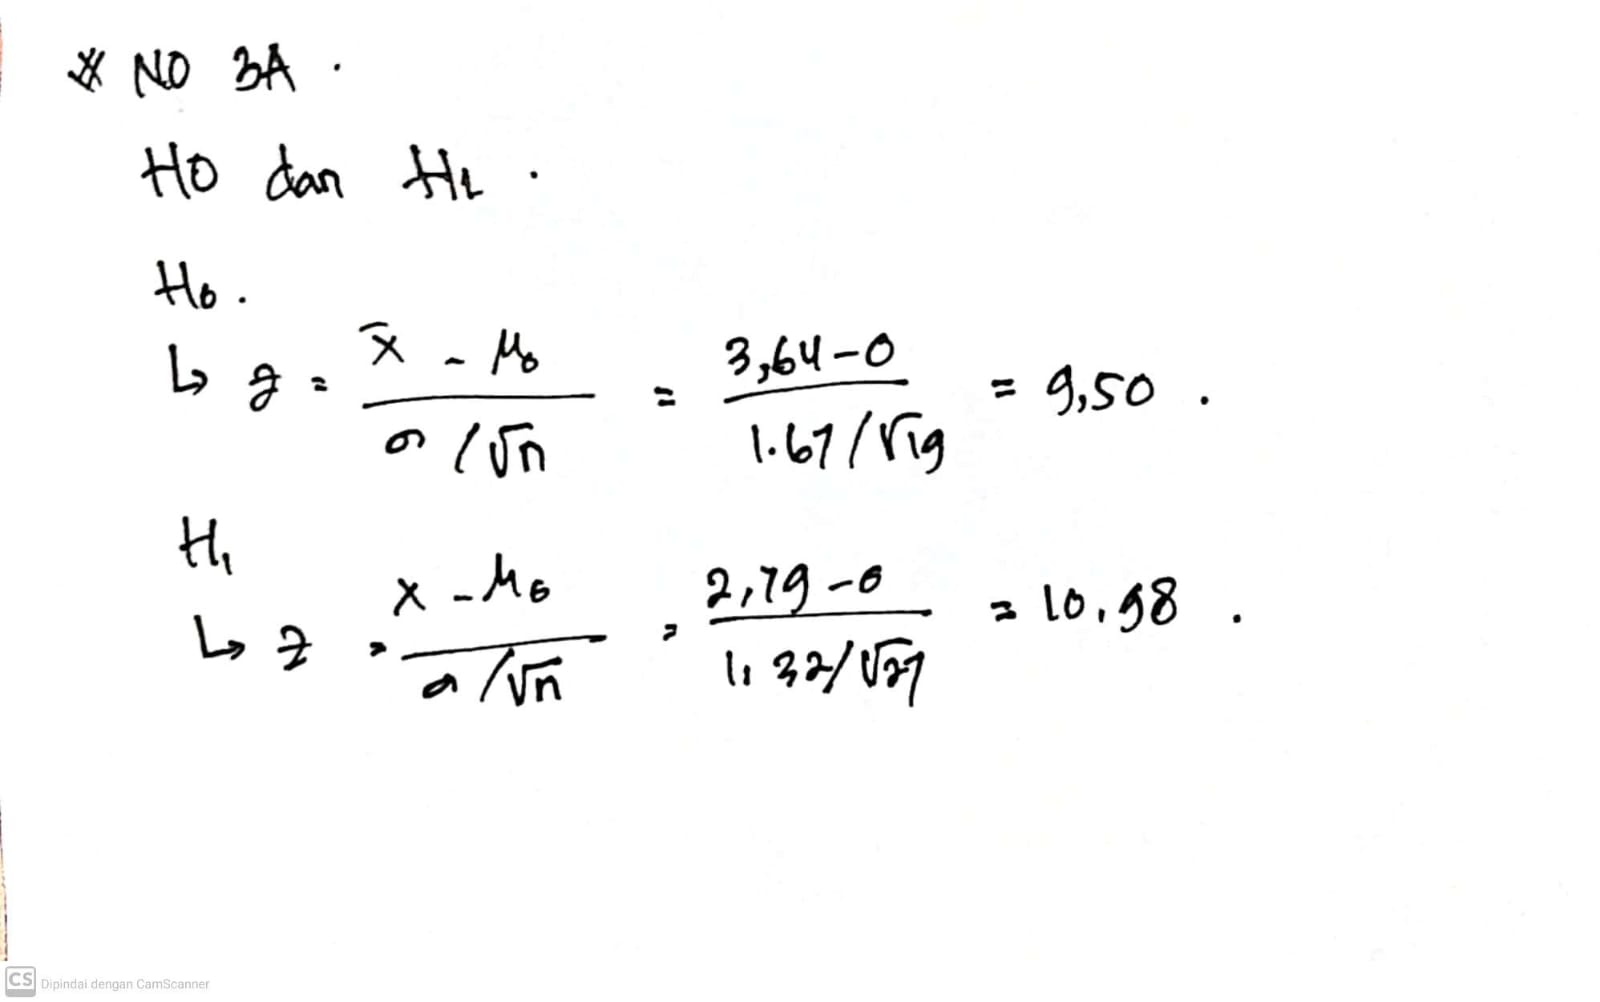 * NO 3A .
H0 dan H1 .
H0 .
↳ z = x̄ - μ0 / σ/√n = 3,64-0 / 1.67/√19 = 9,50 .
H1
↳ z = x - μ0 / σ/√n = 2,79-0 / 1,32/√27 = 10,98 .
CS Dipindai dengan CamScanner